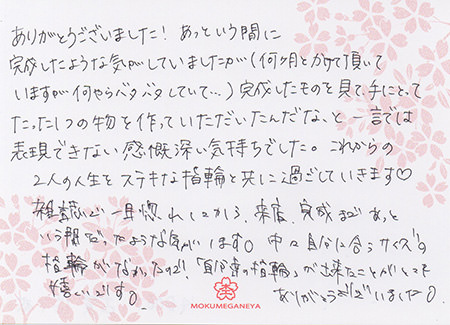 ありがとうございました！ あっという間に
完成したような気がしていましたが（何ヶ月とかけて頂いて
いますが何やらバタバタしていて…）完成したものを見て、手にとって
たった1つの物を作っていただいたんだな、と一言では
表現できない感慨深い気持ちでした。これからの
2人の人生をステキな指輪と共に過ごしていきます♡
雑誌で一目惚れしてから、来店、完成まであっと
いう間だったような気がします。中々自分に合うサイズの
指輪がなかったので、「自分達の指輪」が出来たことがとっても
嬉しいです。 ありがとうございました。
MOKUMEGANEYA